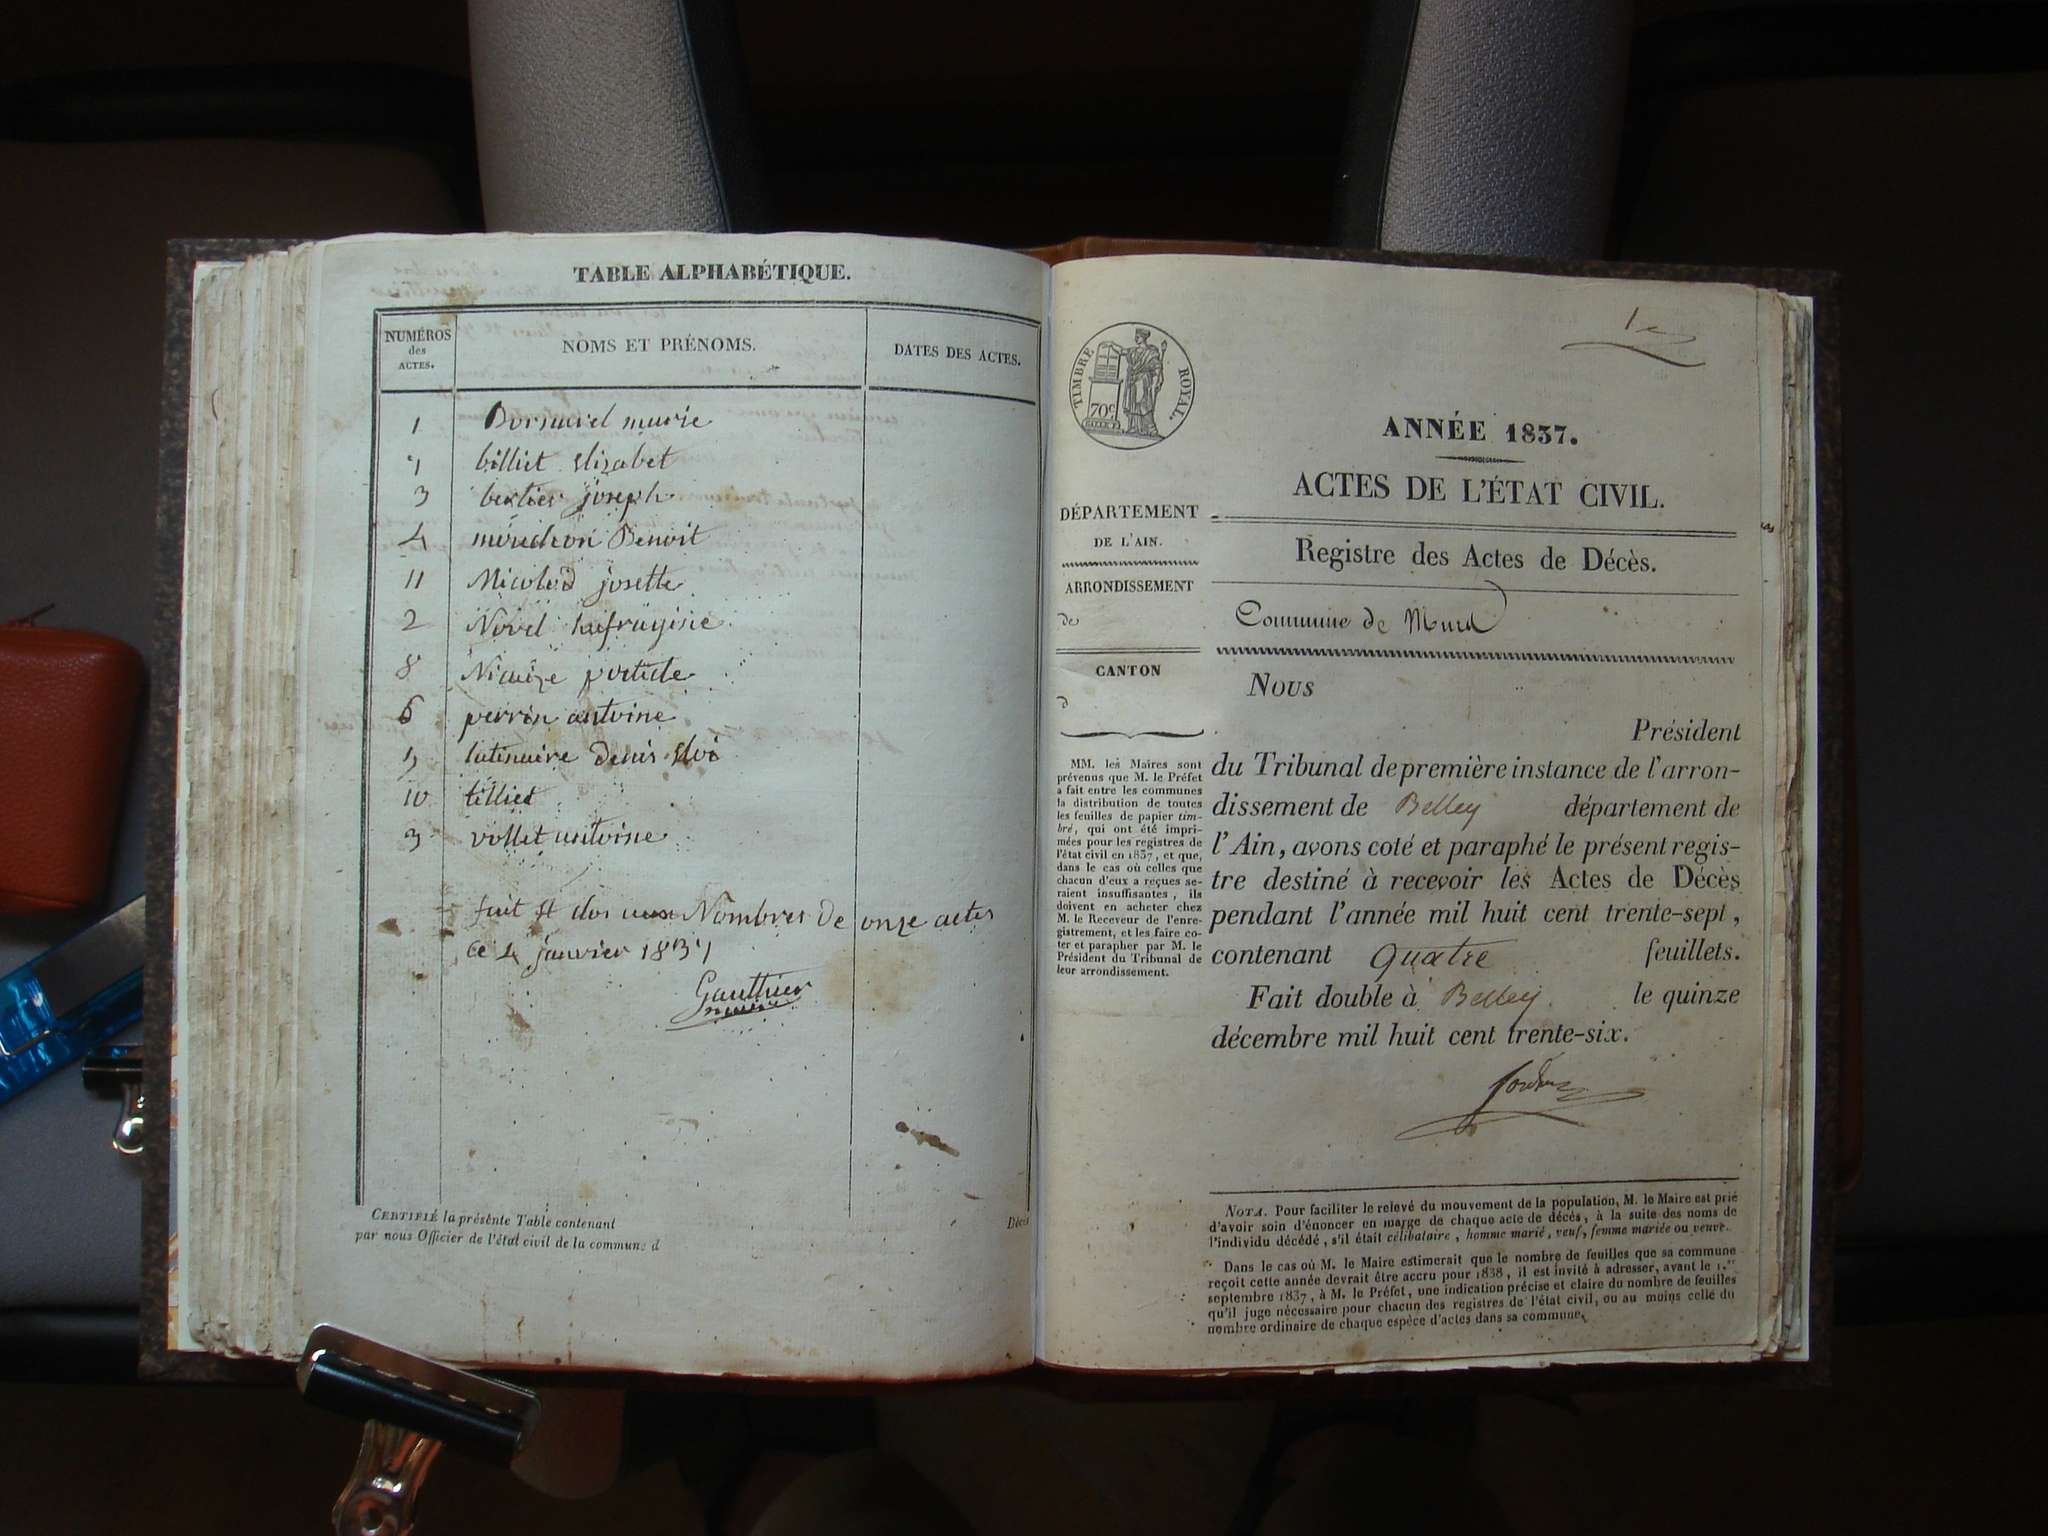 TABLE ALPHABÉTIQUE.
NUMÉROS
des
ACTES.
NOMS ET PRÉNOMS.
DATES DES ACTES.
1 marie
billiet Elizabet
3 bertier joseph
4 Benoit
11 josette
2 Novel
8
6 perrin antoine
denis
10 tilliet
3 vollet antoine
fait et clos aux Nombres de onze actes
ce 4 janvier 1837
Gauthier
maire
CERTIFIÉ la présente Table contenant
Décès
par nous Officier de l'état civil de la commune d
1e
TIMBRE ROYAL.
70c
ANNÉE 1837.
ACTES DE L'ÉTAT CIVIL.
DÉPARTEMENT
DE L'AIN.
Registre des Actes de Décès.
ARRONDISSEMENT
de
Commune de
CANTON
d
Nous
Président
du Tribunal de première instance de l'arron-
dissement de Belley département de
l'Ain, avons coté et paraphé le présent regis-
tre destiné à recevoir les Actes de Décès
pendant l'année mil huit cent trente-sept,
contenant Quatre feuillets.
Fait double à Belley. le quinze
décembre mil huit cent trente-six.
MM. les Maires sont
prévenus que M. le Préfet
a fait entre les communes
la distribution de toutes
les feuilles de papier tim-
bré, qui ont été impri-
mées pour les registres de
l'état civil en 1837, et que,
dans le cas où celles que
chacun d'eux a reçues se-
raient insuffisantes, ils
doivent en acheter chez
M. le Receveur de l'enre-
gistrement, et les faire co-
ter et parapher par M. le
Président du Tribunal de
leur arrondissement.
NOTA. Pour faciliter le relevé du mouvement de la population, M. le Maire est prié
d'avoir soin d'énoncer en marge de chaque acte de décès, à la suite des noms de
l'individu décédé, s'il était célibataire, homme marié, veuf, femme mariée ou veuve.
Dans le cas où M. le Maire estimerait que le nombre de feuilles que sa commune
reçoit cette année devrait être accru pour 1838, il est invité à adresser, avant le 1.er
septembre 1837, à M. le Préfet, une indication précise et claire du nombre de feuilles
qu'il juge nécessaire pour chacun des registres de l'état civil, ou au moins celle du
nombre ordinaire de chaque espèce d'actes dans sa commune.